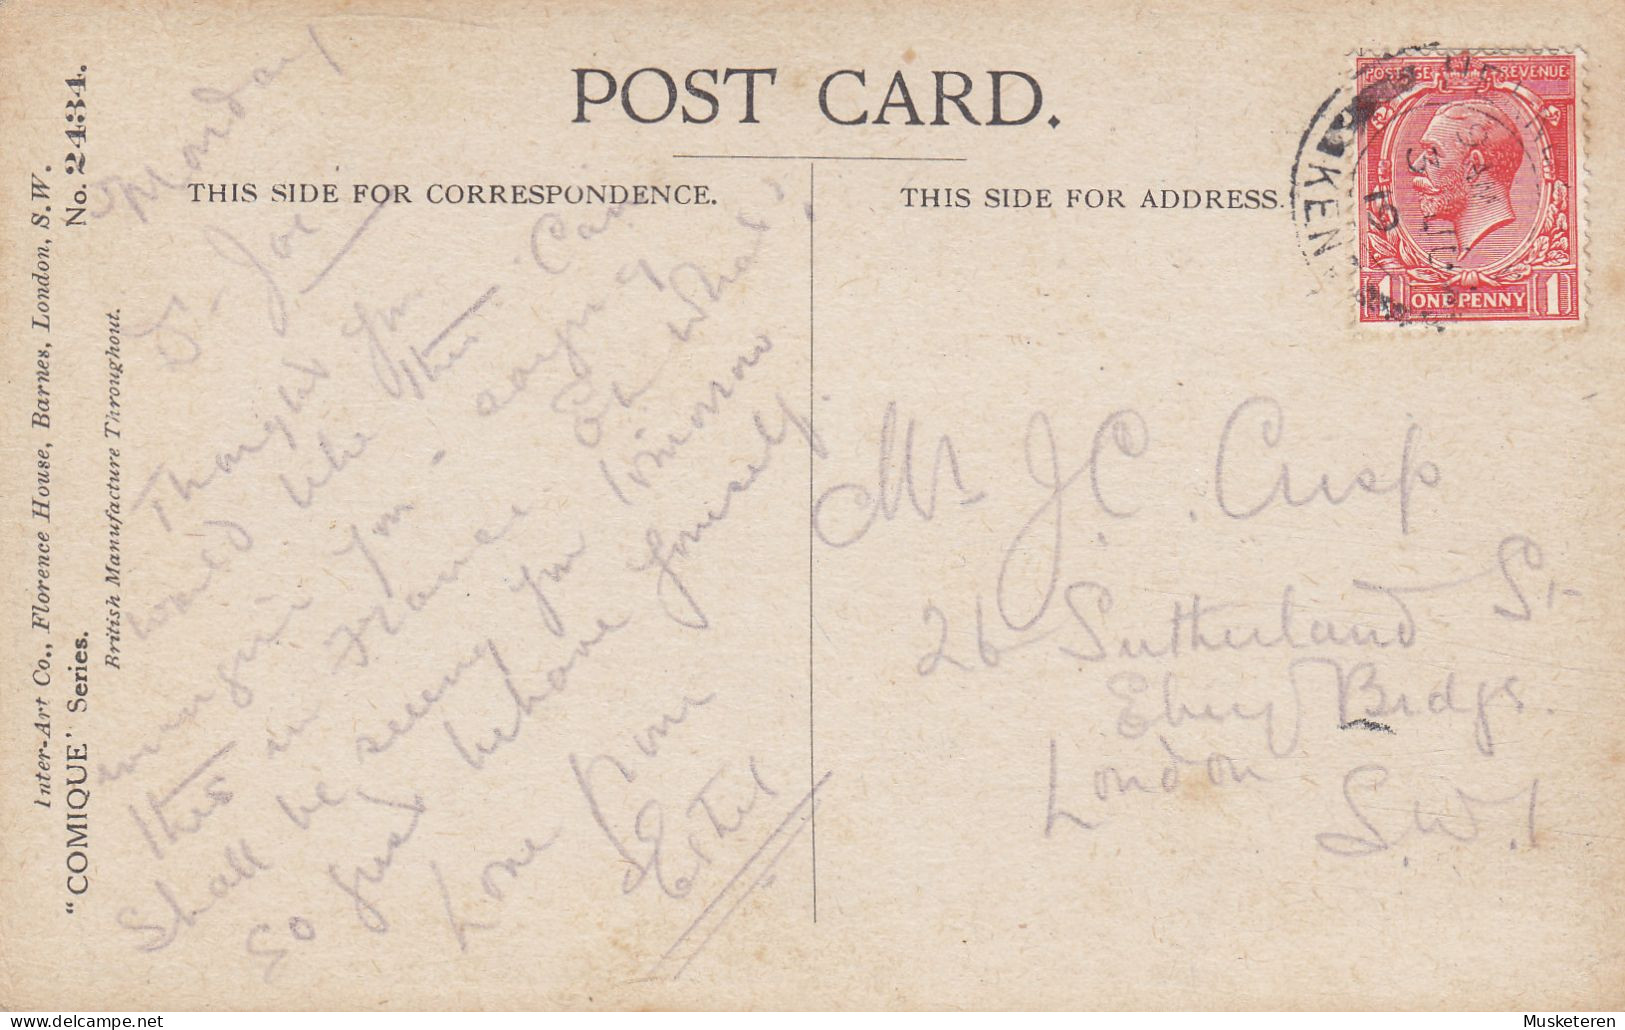 POST CARD.
THIS SIDE FOR CORRESPONDENCE.
THIS SIDE FOR ADDRESS.
Inter-Art Co., Florence House, Barnes, London, S.W.
"COMIQUE" Series. No. 2434.
British Manufacture Throughout.
Monday
Joe
Thought you
would like this Card
imagine you saying
this in France Eh What?
Shall be seeing you tomorrow
So just behave yourself
Love from
Ethel
Mr J. C. Crisp
26 Sutherland St
Ebury Bridge
London
S.W.1
POSTAGE REVENUE
1 ONE PENNY 1
KEN
3 JU
19
Musketeren @ delcampe.net